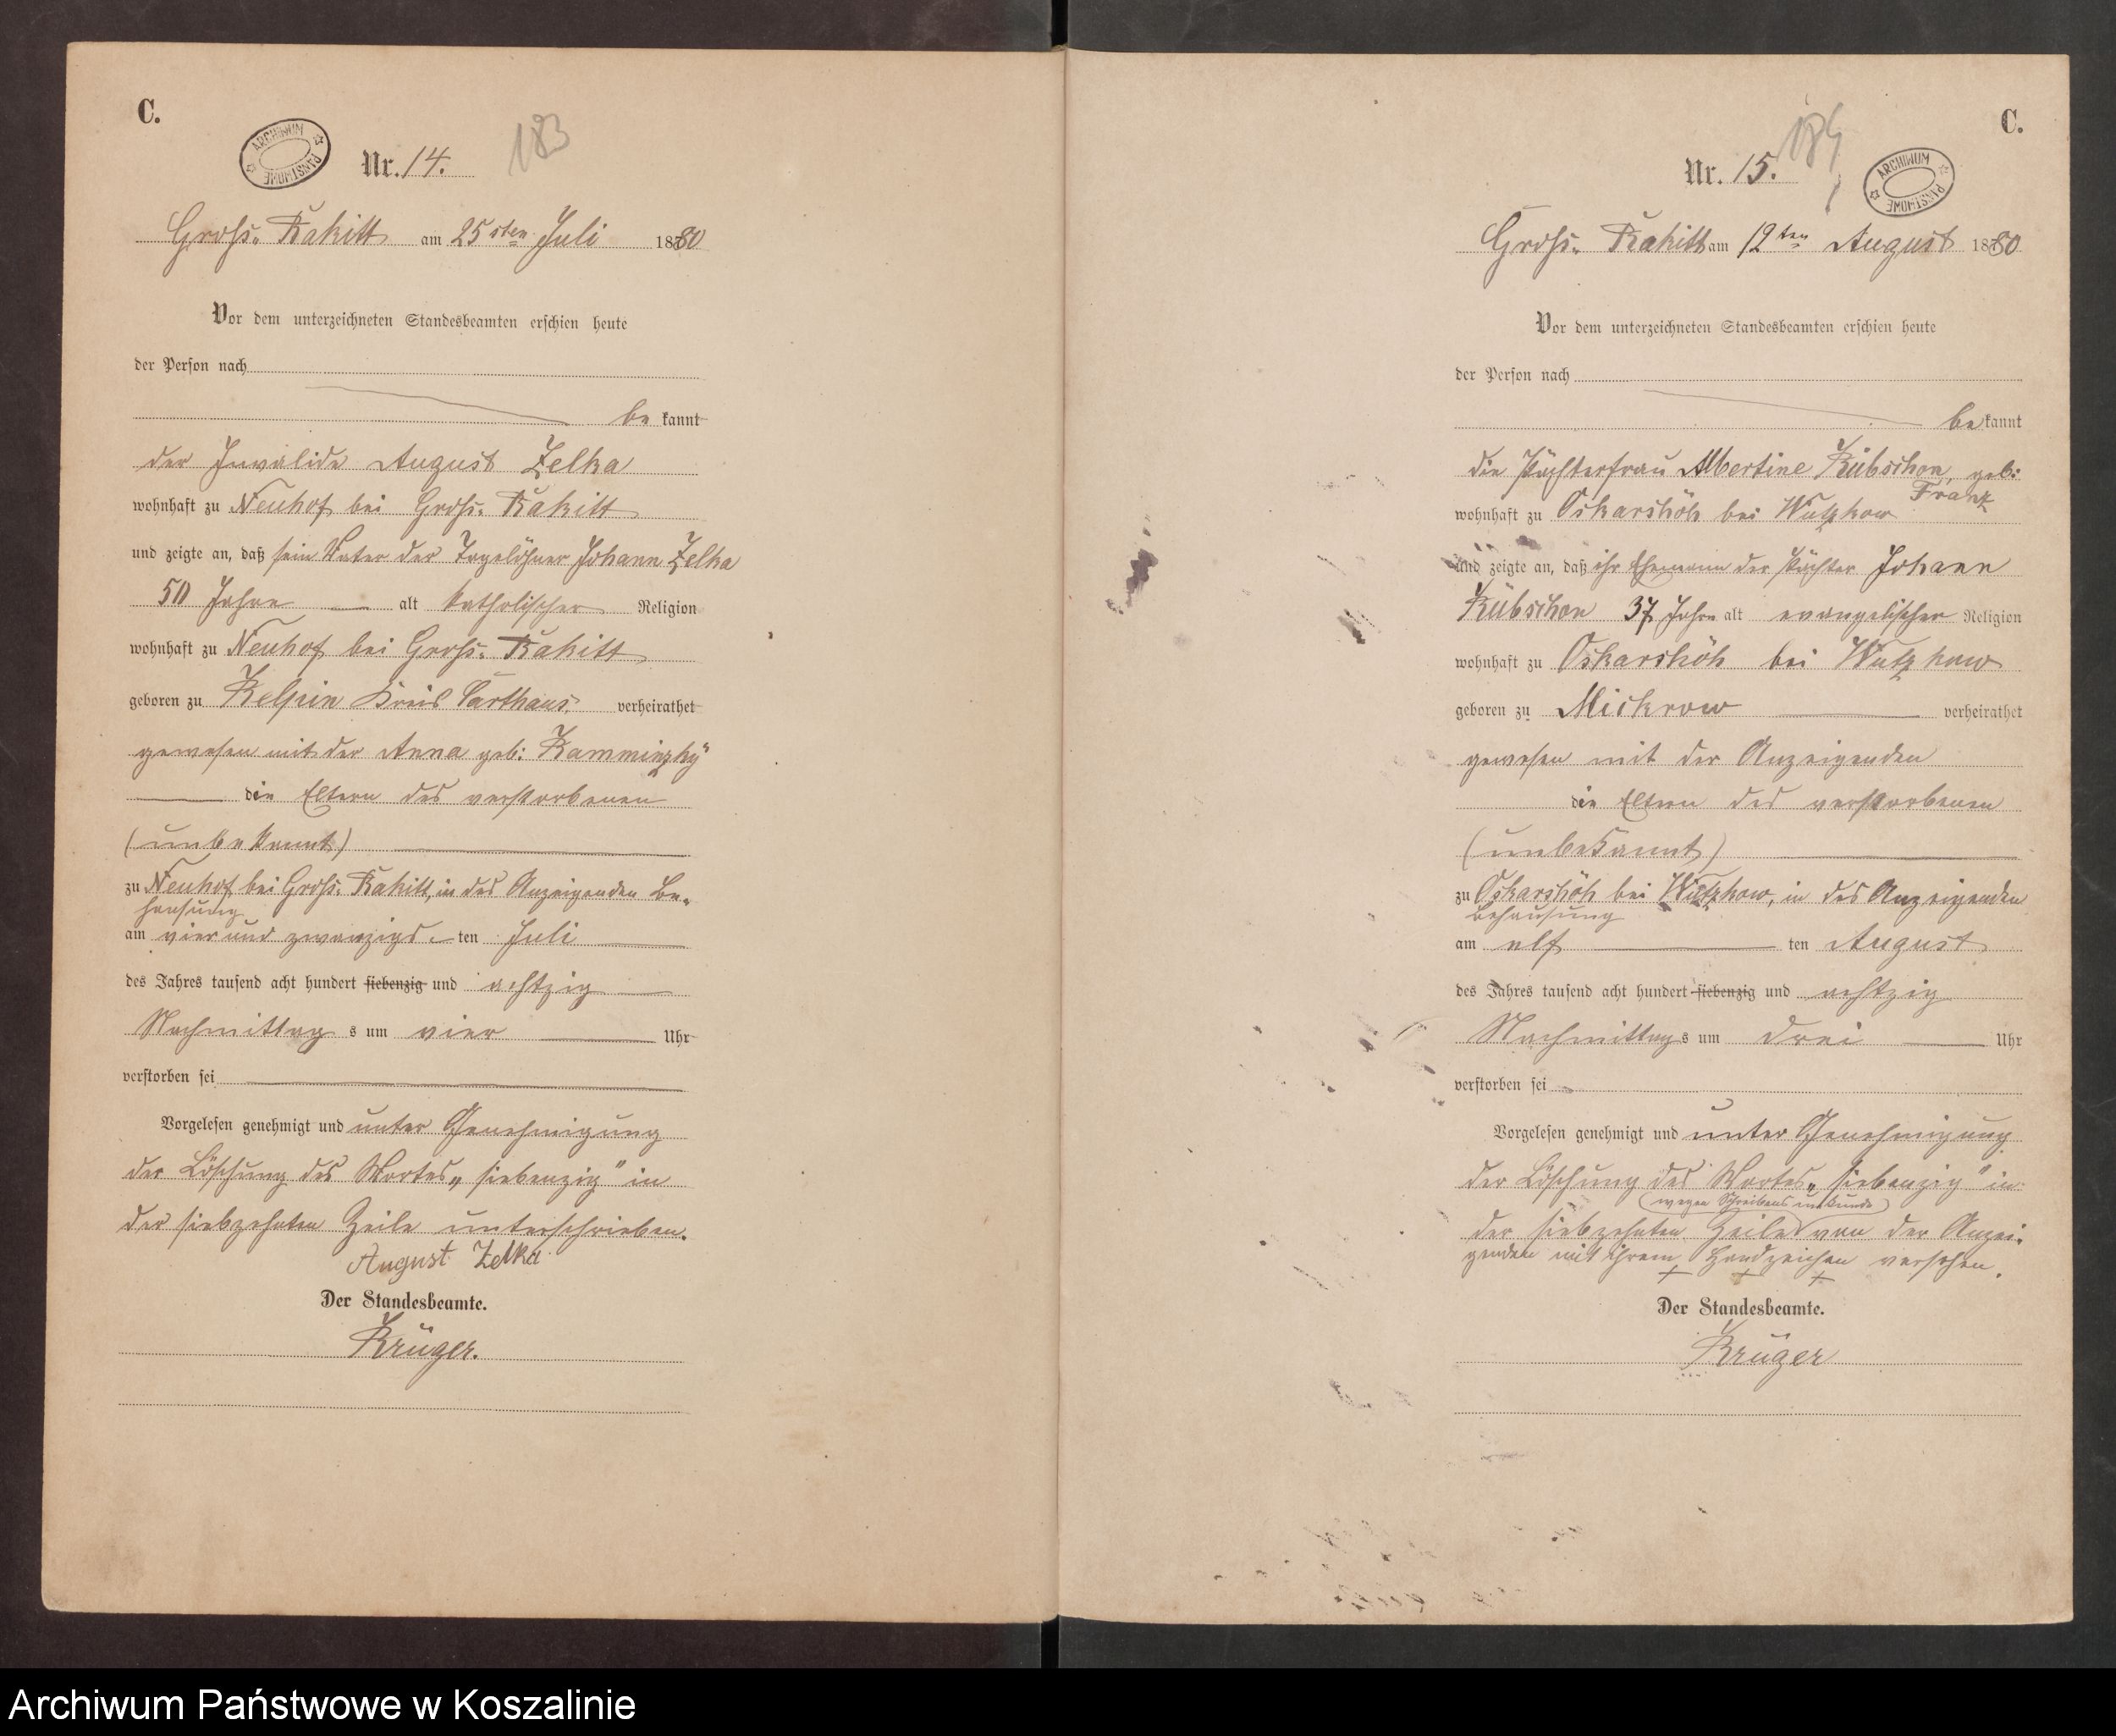 C.
ARCHIWUM PAŃSTWOWE
Nr. 14.
183
Gross-Rakitt am 25sten Juli 1880
Vor dem unterzeichneten Standesbeamten erschien heute
der Person nach
be kannt
der Invalide August Zelka
wohnhaft zu Neuhof bei Gross-Rakitt
und zeigte an, daß sein Vater der Tagelöhner Johann Zelka
50 Jahre alt katholischer Religion
wohnhaft zu Neuhof bei Gross-Rakitt
geboren zu Kelpin Kreis Carthaus, verheirathet
gewesen mit der Anna geb: Kamminzky
die Eltern des verstorbenen
(unbekannt)
zu Neuhof bei Gross-Rakitt, in des Anzeigenden Be-
hausung
am vier und zwanzigs ten Juli
des Jahres tausend acht hundert siebenzig und achtzig
Nachmittag s um vier Uhr
verstorben sei
Vorgelesen genehmigt und unter Genehmigung
der Löschung des Wortes „siebenzig" in
der siebzehnten Zeile unterschrieben.
August Zelka
Der Standesbeamte.
Krüger.
C.
Nr. 15.
ARCHIWUM PAŃSTWOWE
Gross-Rakitt am 12ten August 1880
Vor dem unterzeichneten Standesbeamten erschien heute
der Person nach
be kannt
die Pächterfrau Albertine Rübschon, geb:
Franz
wohnhaft zu Oskarshöh bei Wutzkow
und zeigte an, daß ihr Ehemann der Pächter Johann
Rübschon 37 Jahre alt evangelischer Religion
wohnhaft zu Oskarshöh bei Wutzkow
geboren zu Mickrow verheirathet
gewesen mit der Anzeigenden
die Eltern des verstorbenen
(unbekannt)
zu Oskarshöh bei Wutzkow, in des Anzeigenden
Behausung
am elf ten August
des Jahres tausend acht hundert siebenzig und achtzig
Nachmittag s um drei Uhr
verstorben sei
Vorgelesen genehmigt und unter Genehmigung
der Löschung des Wortes „siebenzig" in
(wegen Schreibensunkunde)
der siebzehnten Zeile von der Anzei-
genden mit ihrem Handzeichen versehen.
+ + +
Der Standesbeamte.
Krüger
Archiwum Państwowe w Koszalinie